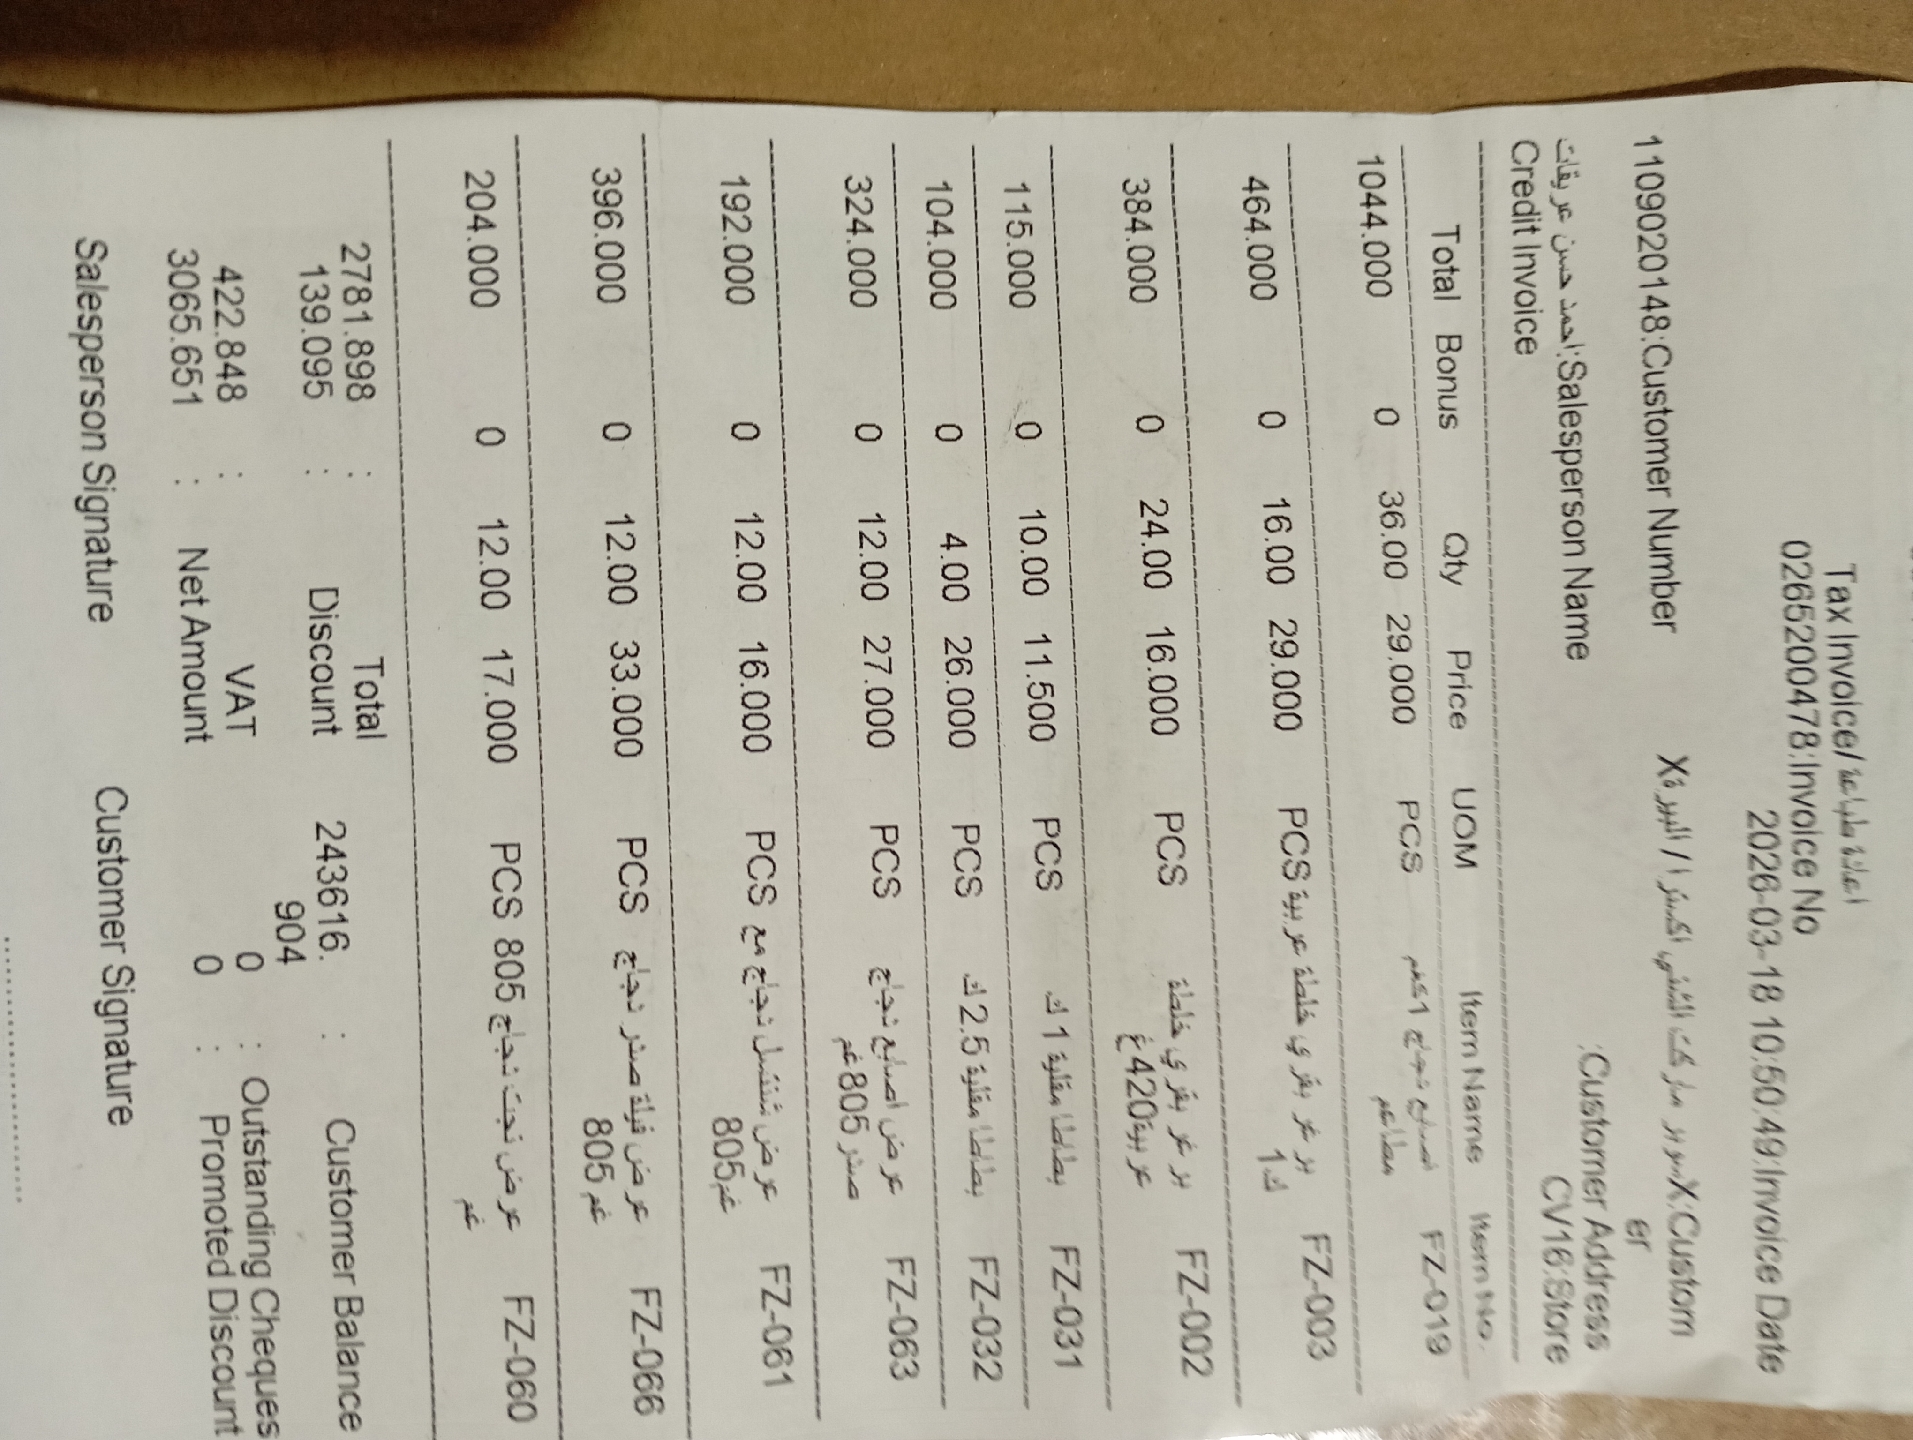 Tax Invoice/اعادة طباعة
0265200478:Invoice No
2026-03-18 10:50:49:Invoice Date
1109020148:Customer Number
Xسوبر ماركت الشني اكسترا / البيرةX:Custom
er
:Customer Address
احمد حسن عريقات:Salesperson Name
CV16:Store
Credit Invoice
Total Bonus Qty Price UOM Item Name Item No.
1044.000 0 36.00 29.000 PCS اصابع دجاج 1كغم FZ-019
مطاعم
464.000 0 16.00 29.000 PCS برغر بقري خلطة عربية FZ-003
1ك
384.000 0 24.00 16.000 PCS برغر بقري خلطة FZ-002
عربية420غ
115.000 0 10.00 11.500 PCS بطاطا مقلية 1 ك FZ-031
104.000 0 4.00 26.000 PCS بطاطا مقلية 2.5 ك FZ-032
324.000 0 12.00 27.000 PCS عرض اصابع دجاج FZ-063
صدر 805غم
192.000 0 12.00 16.000 PCS عرض شنتسل دجاج مع FZ-061
805غم
396.000 0 12.00 33.000 PCS عرض فيلة صدر دجاج FZ-066
805غم
204.000 0 12.00 17.000 PCS عرض نجت دجاج 805 FZ-060
غم
2781.898 : Total
139.095 : Discount 243616. : Customer Balance
904
422.848 : VAT 0 : Outstanding Cheques
3065.651 : Net Amount 0 : Promoted Discount
Salesperson Signature Customer Signature